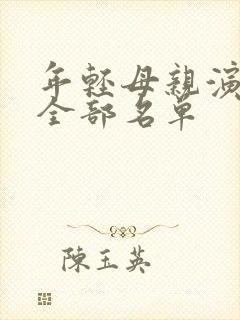 年輕母親演
全部名單
陳玉英